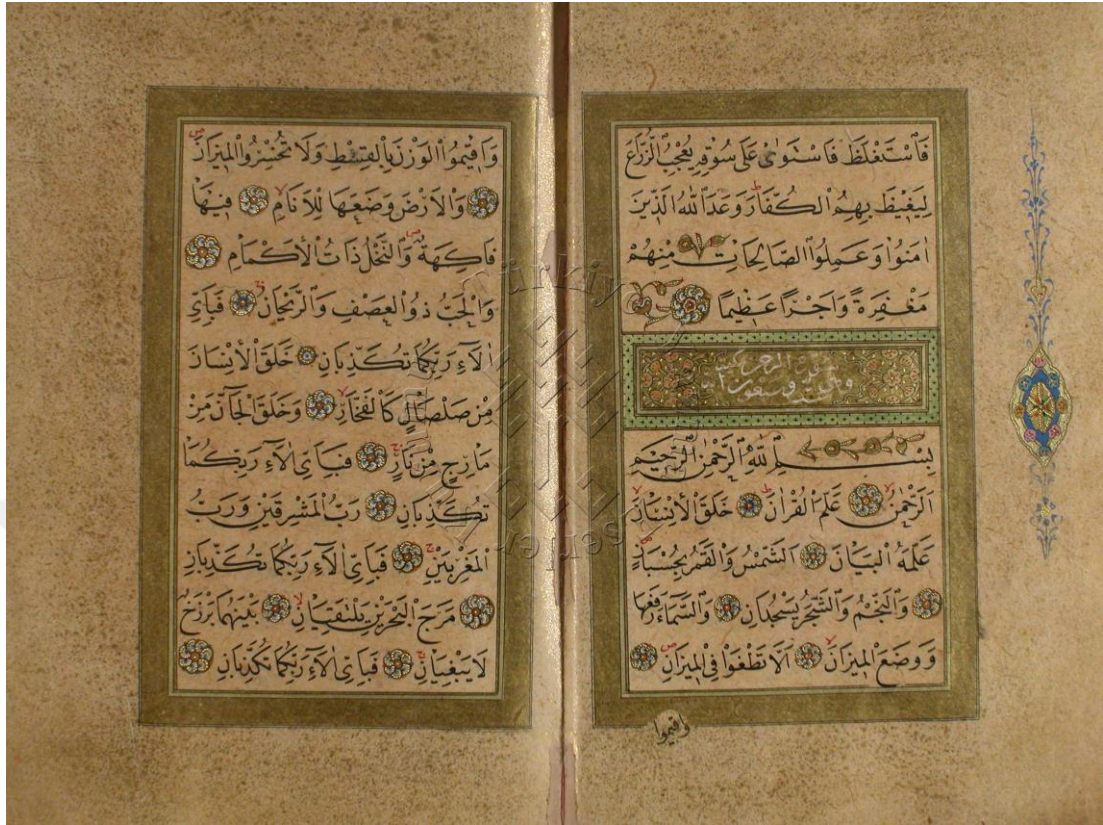 فَاسْتَغْلَظَ فَاسْتَوٰى عَلٰى سُوقِهِ يُعْجِبُ الزُّرَّاعَ
لِيَغِيظَ بِهِمُ الْكُفَّارَ وَعَدَ اللّٰهُ الَّذِينَ
اٰمَنُوا وَعَمِلُوا الصَّالِحَاتِ مِنْهُمْ
مَغْفِرَةً وَاَجْرًا عَظِيمًا
بِسْمِ اللّٰهِ الرَّحْمٰنِ الرَّحِيمِ
اَلرَّحْمٰنُ عَلَّمَ الْقُرْاٰنَ خَلَقَ الْاِنْسَانَ
عَلَّمَهُ الْبَيَانَ اَلشَّمْسُ وَالْقَمَرُ بِحُسْبَانٍ
وَالنَّجْمُ وَالشَّجَرُ يَسْجُدَانِ وَالسَّمَاءَ رَفَعَهَا
وَوَضَعَ الْمِيزَانَ اَلَّا تَطْغَوْا فِي الْمِيزَانِ
وَاَقِيمُوا
وَاَقِيمُوا الْوَزْنَ بِالْقِسْطِ وَلَا تُخْسِرُوا الْمِيزَانَ
وَالْاَرْضَ وَضَعَهَا لِلْاَنَامِ فِيهَا
فَاكِهَةٌ وَالنَّخْلُ ذَاتُ الْاَكْمَامِ
وَالْحَبُّ ذُو الْعَصْفِ وَالرَّيْحَانُ فَبِاَيِّ
اٰلَاءِ رَبِّكُمَا تُكَذِّبَانِ خَلَقَ الْاِنْسَانَ
مِنْ صَلْصَالٍ كَالْفَخَّارِ وَخَلَقَ الْجَانَّ مِنْ
مَارِجٍ مِنْ نَارٍ فَبِاَيِّ اٰلَاءِ رَبِّكُمَا
تُكَذِّبَانِ رَبُّ الْمَشْرِقَيْنِ وَرَبُّ
الْمَغْرِبَيْنِ فَبِاَيِّ اٰلَاءِ رَبِّكُمَا تُكَذِّبَانِ
مَرَجَ الْبَحْرَيْنِ يَلْتَقِيَانِ بَيْنَهُمَا بَرْزَخٌ
لَا يَبْغِيَانِ فَبِاَيِّ اٰلَاءِ رَبِّكُمَا تُكَذِّبَانِ